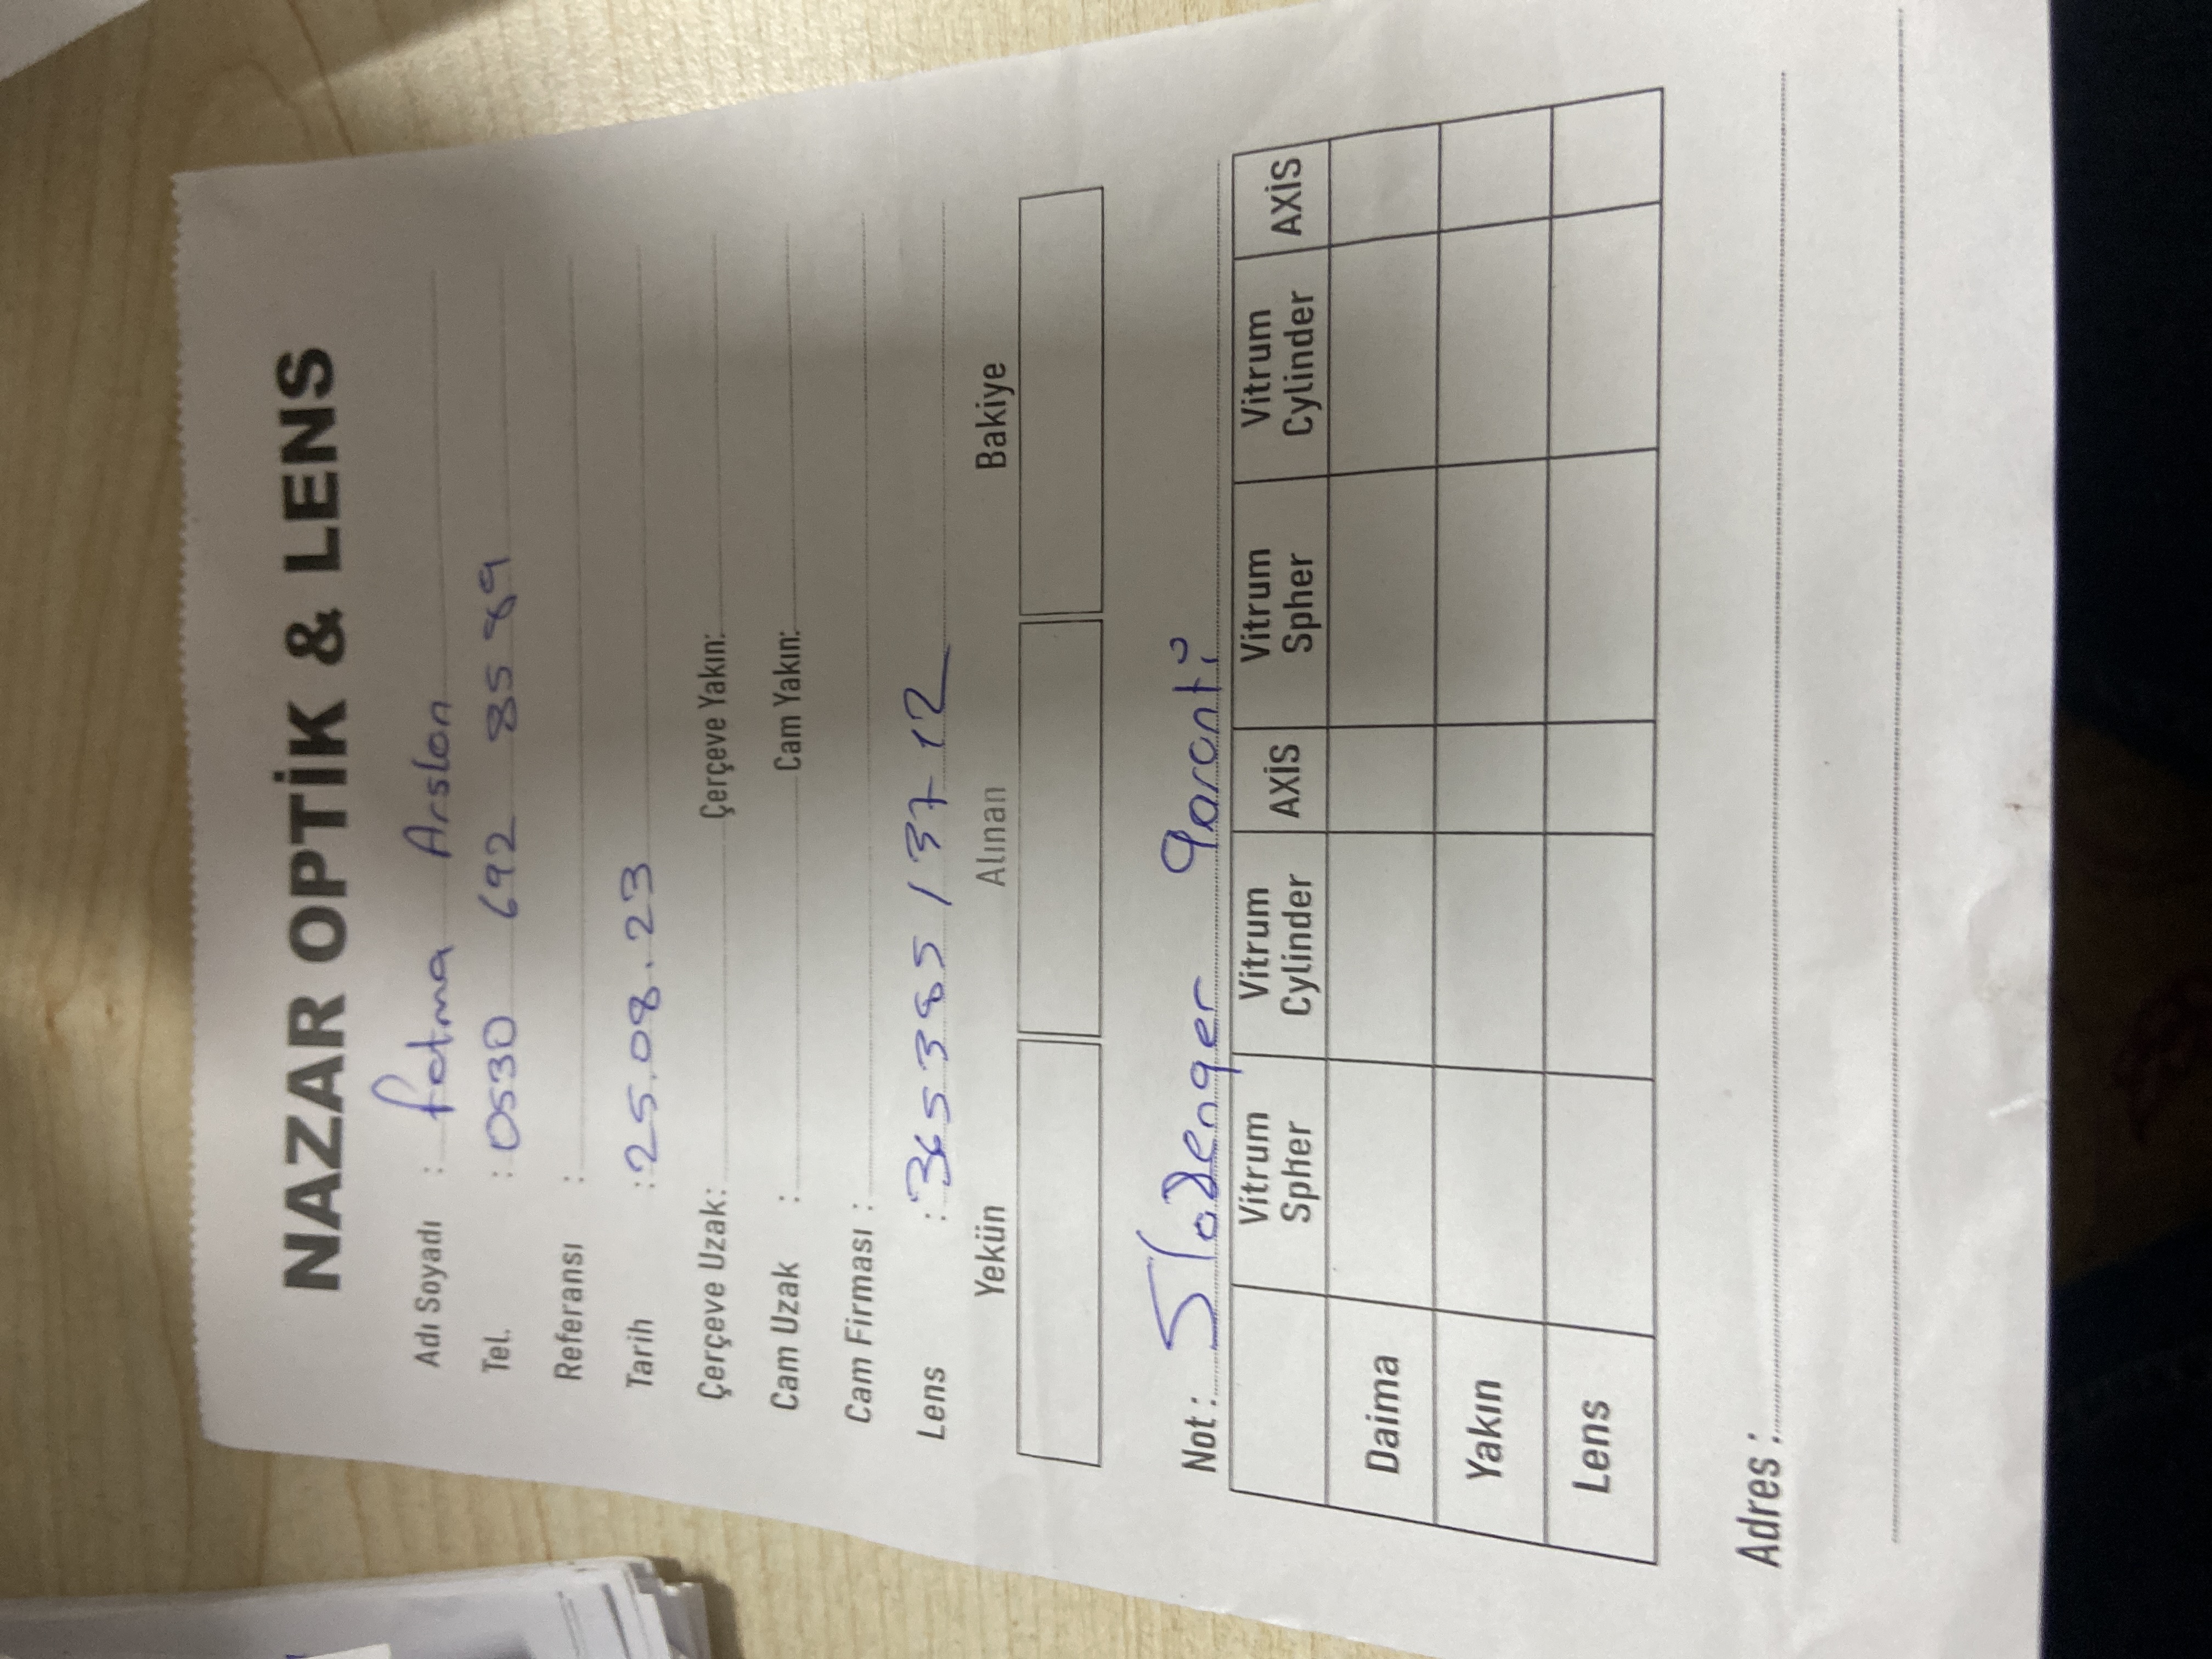 NAZAR OPTİK & LENS
Adı Soyadı : Fatma Arslan
Tel. : 0530 692 85 89
Referansı :
Tarih : 25.08.23
Çerçeve Uzak: Çerçeve Yakın:
Cam Uzak : Cam Yakın:
Cam Firması :
Lens : 365385 / 37 12
Yekün Alınan Bakiye
Not : Slazenger Garanti
Vitrum Spher Vitrum Cylinder AXİS Vitrum Spher Vitrum Cylinder AXİS
Daima
Yakın
Lens
Adres :